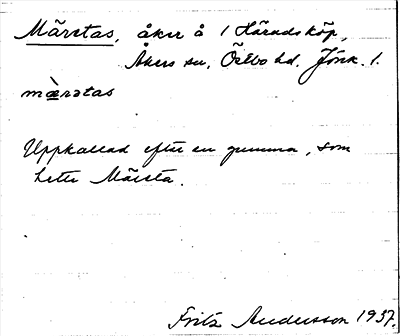 Märstas, åker å 1 Häradsköp,
Åkers sn, Östbo hd. Jönk. l.
mæ̀rstas
Uppkallad efter en gumma, som
hette Märsta.
Fritz Andersson 1937.